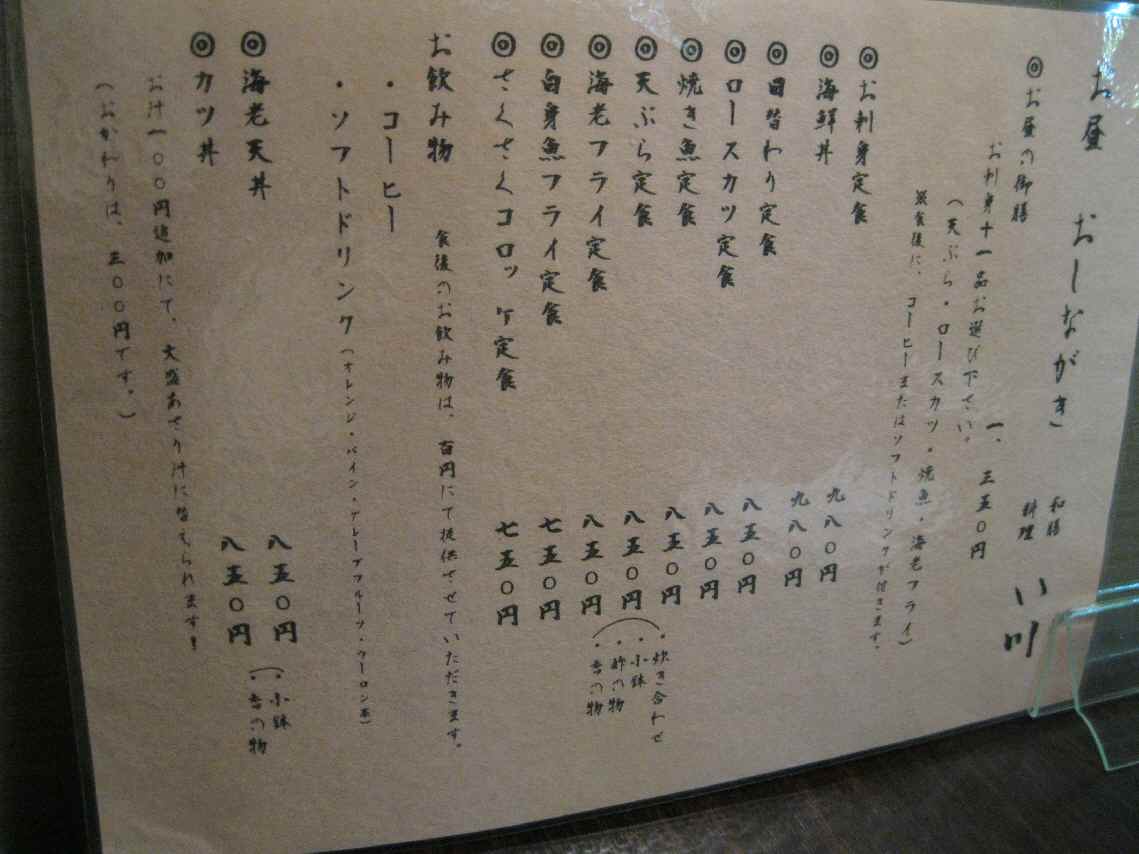 お昼 おしながき
和膳
料理
い川
◎お昼の御膳
お刺身十一品お選び下さい。
一、三五〇円
(天ぷら・ロースカツ・焼魚・海老フライ)
※食後に、コーヒーまたはソフトドリンクが付きます。
◎お刺身定食 九八〇円
◎海鮮丼 九八〇円
◎日替わり定食 八五〇円
◎ロースカツ定食 八五〇円
◎焼き魚定食 八五〇円
◎天ぷら定食 八五〇円
◎海老フライ定食 八五〇円
◎白身魚フライ定食 七五〇円
◎さくさくコロッケ定食 七五〇円
(・炊き合わせ
・小鉢
・酢の物
・香の物
お飲み物 食後のお飲み物は、百円にて提供させていただきます。
・コーヒー
・ソフトドリンク(オレンジ・パイン・グレープフルーツ・ウーロン茶)
◎海老天丼 八五〇円
◎カツ丼 八五〇円
(・小鉢
・香の物
お汁一〇〇円追加にて、大盛あさり汁に替えられます!
(おかわりは、三〇〇円です。)